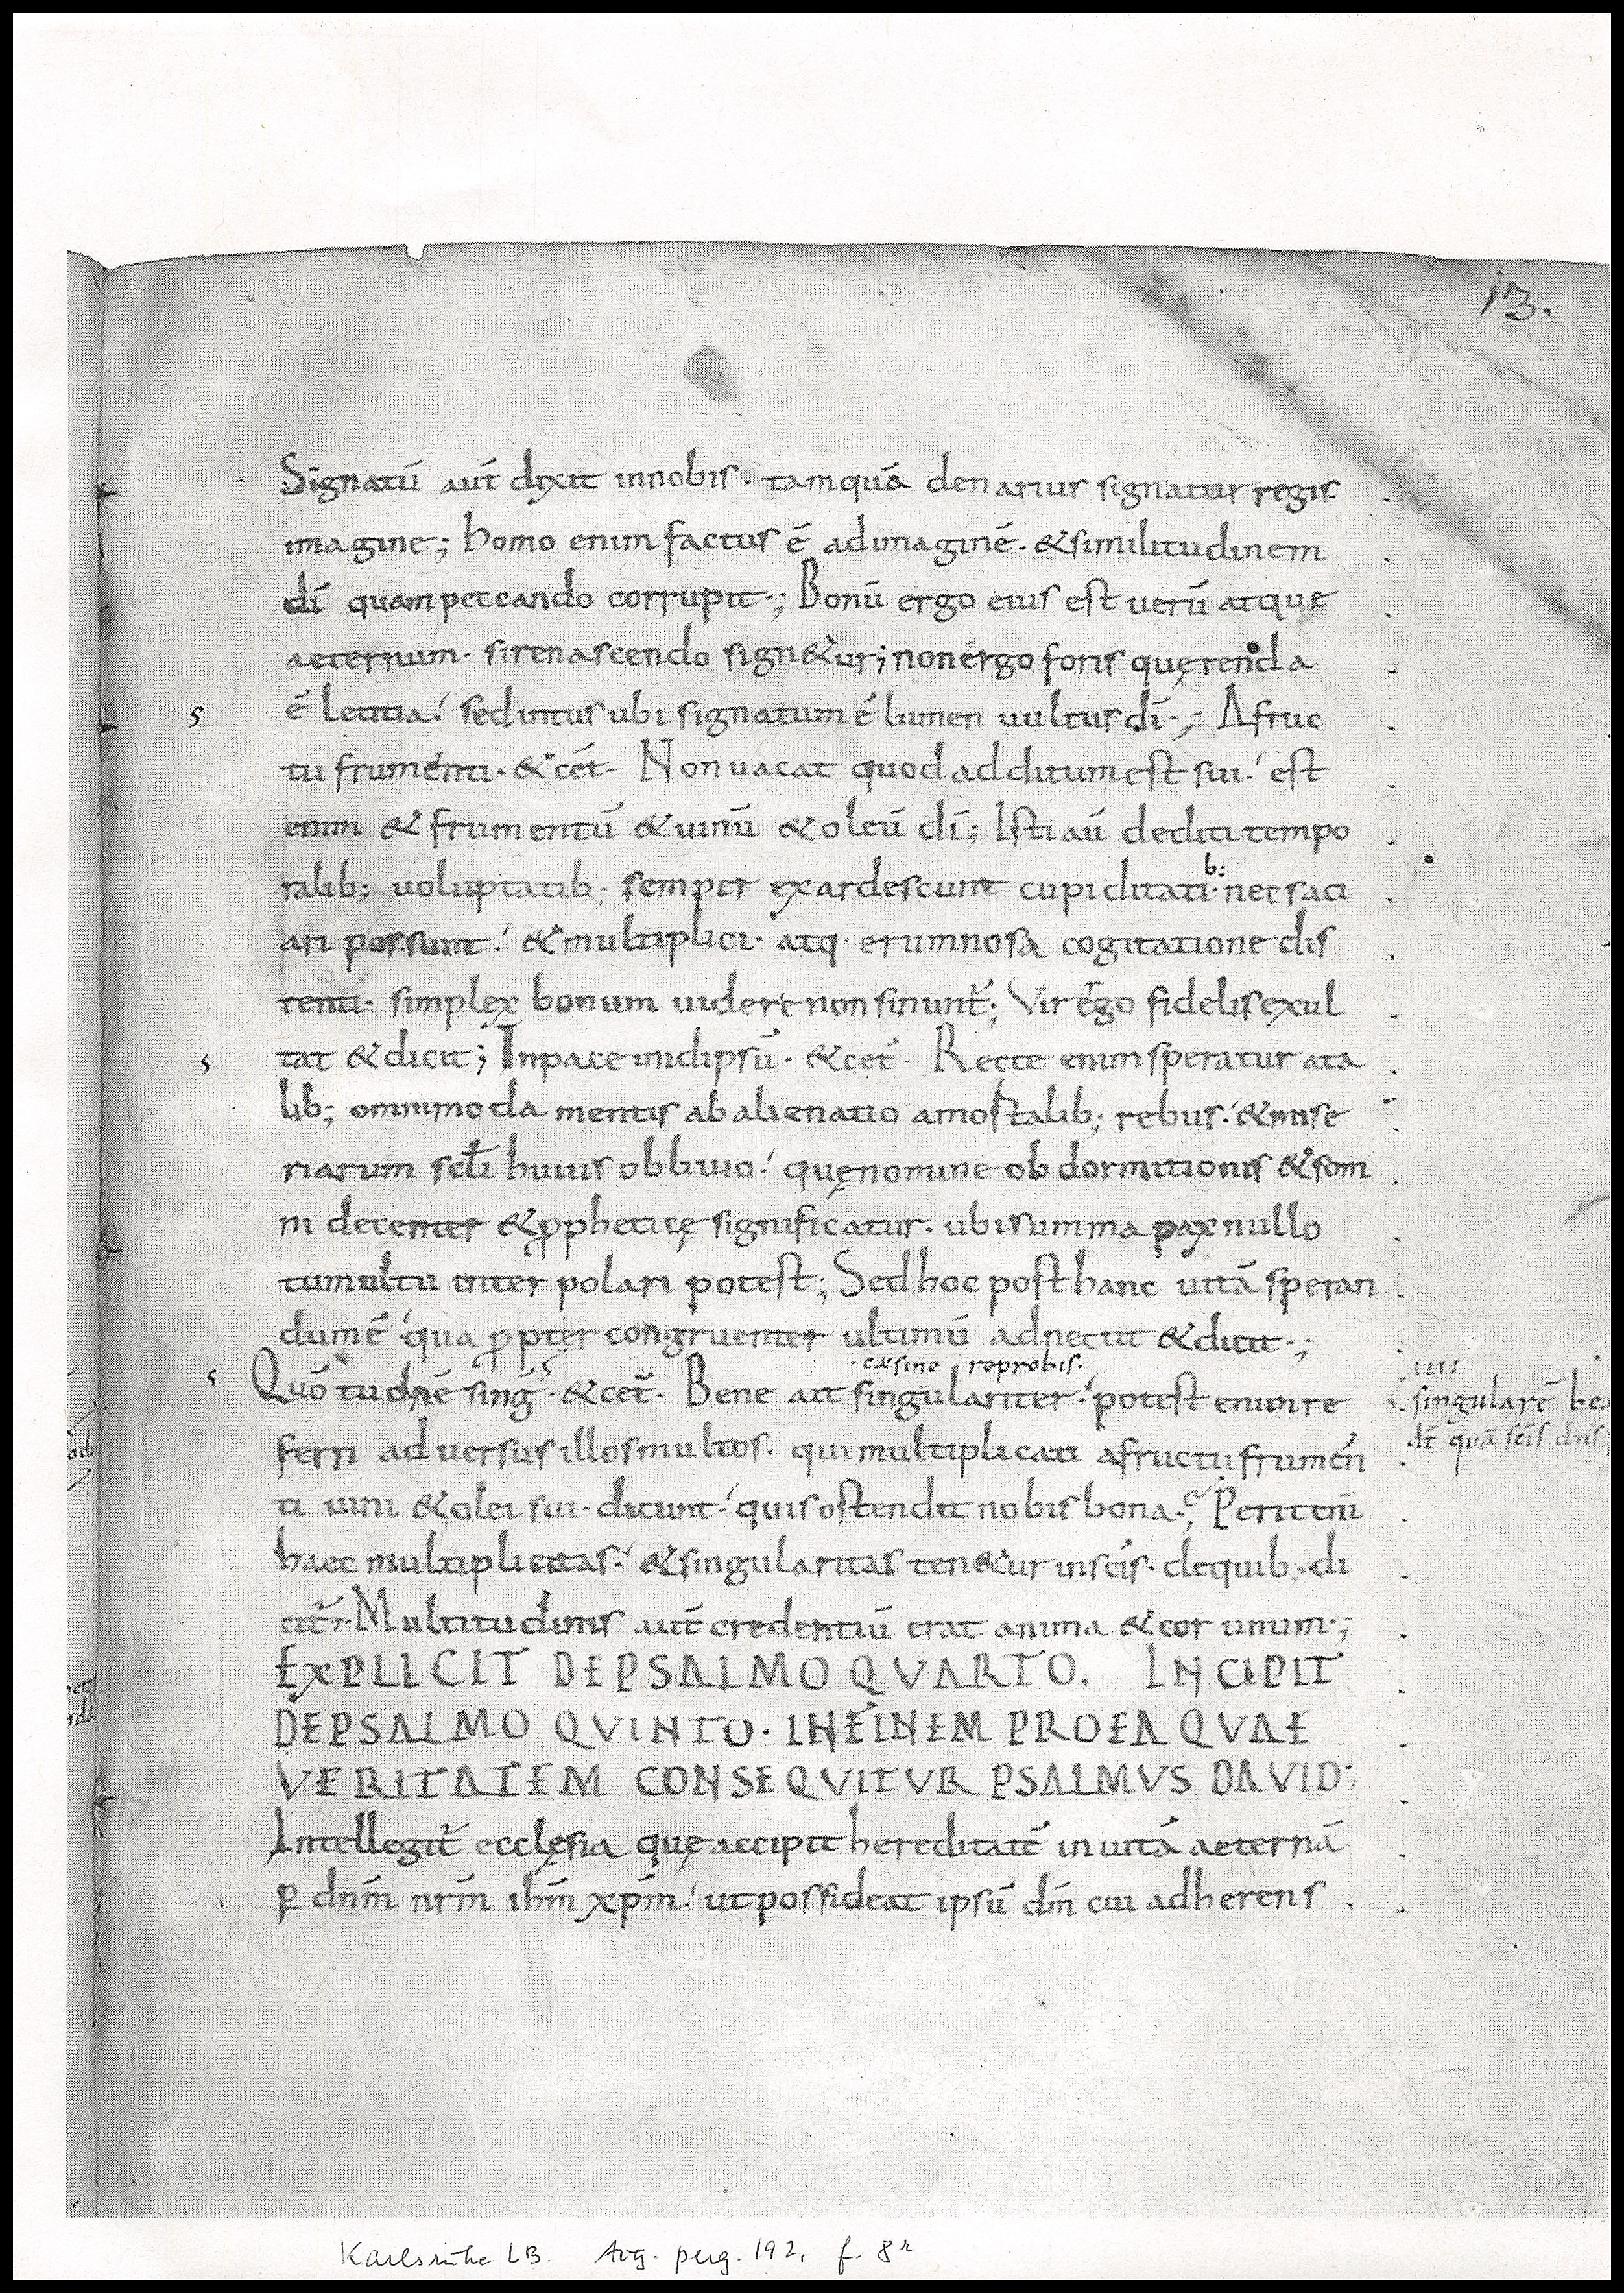 13.
Signatū aut̄ dixit innobis· tamquā denarius signatur regis
imagine; homo enim factus ē adimaginē· &similitudinem
dī quampeccando corrupit·; Bonū ergo eius est uerū atque
aeternum· sirenascendo sign&ur; nonergo foris querenda
ē letitia! sedintus ubi signatum ē lumen uultus dī·; Afruc
tu frumenti· &cēt· Non uacat quod additum est sui! est
enim & frumentū &uinū &oleū dī; Isti aū dediti tempo
b:
ralib; uoluptatib; semper exardescunt cupiditati· nec saci
ari possunt! &multiplici· atq· erumnosa cogitatione dis
tenti· simplex bonum uidere non sinunt̄; Vir ergo fidelis exul
tat &dicit; Inpace inidipsū· &cet̄· Recte enim speratur ata
lib; omnimoda mentis abalienatio amortalib; rebus! &mise
riarum scl̄i huius obliuio! quęnomine obdormitionis &som
ni decenter &pphetice significatur· ubisumma pax nullo
tumultu inter polari potest; Sedhoc posthanc uitā speran
dumē! qua ppter congruenter ultimū adnectit &dicit·;
·exsine reprobis·
Quō tu dn̄e sing· &cet̄· Bene ait singulariter! potest enim re
ferri aduersus illos multos· qui multiplicati afructu frumen
singularē
dī quā sc̄is
ti uini &olei sui· dicunt! quis ostendit nobis bona·; Perit enī
haec multiplicitas! &singularitas ten&ur insc̄is· dequib; di
cit̄· Multitudinis aut̄ credentiū erat anima &cor unum·;
EXPLICIT DEPSALMO QVARTO. INCIPIT
DEPSALMO QVINTO· INFINEM PROEA QVAE
VERITATEM CONSEQVITVR PSALMVS DAVID:
Intellegit̄ ecclesia quę accipit hereditatē in uitā aeternā
p dnm̄ nrm̄ ihm̄ xpm̄! ut possideat ipsū dm̄ cui adherens
Karlsruhe LB. Aug. perg. 192, f. 8r